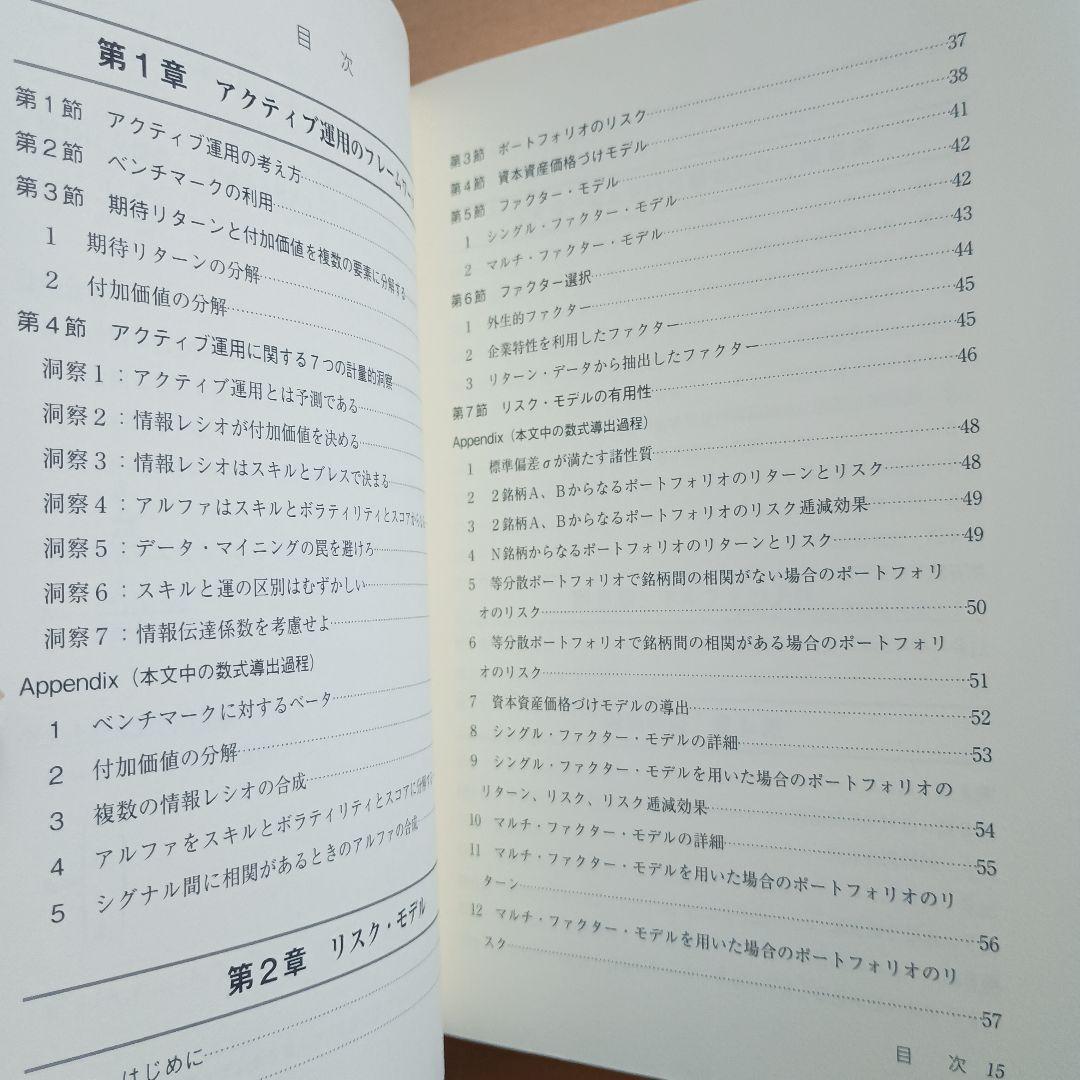 目 次
第1章 アクティブ運用のフレームワー
第1節 アクティブ運用の考え方
第2節 ベンチマークの利用
第3節 期待リターンと付加価値を複数の要素に分解する
1 期待リターンの分解
2 付加価値の分解
第4節 アクティブ運用に関する7つの計量的洞察
洞察1：アクティブ運用とは予測である
洞察2：情報レシオが付加価値を決める
洞察3：情報レシオはスキルとブレスで決まる
洞察4：アルファはスキルとボラティリティとスコア
洞察5：データ・マイニングの罠を避けろ
洞察6：スキルと運の区別はむずかしい
洞察7：情報伝達係数を考慮せよ
Appendix（本文中の数式導出過程）
1 ベンチマークに対するベータ
2 付加価値の分解
3 複数の情報レシオの合成
4 アルファをスキルとボラティリティとスコアに分解する
5 シグナル間に相関があるときのアルファの合成
第2章 リスク・モデル
はじめに
第3節 ポートフォリオのリスク 37
第4節 資本資産価格づけモデル 38
第5節 ファクター・モデル 41
1 シングル・ファクター・モデル 42
2 マルチ・ファクター・モデル 42
第6節 ファクター選択 43
1 外生的ファクター 44
2 企業特性を利用したファクター 45
3 リターン・データから抽出したファクター 45
第7節 リスク・モデルの有用性 46
Appendix（本文中の数式導出過程）
1 標準偏差σが満たす諸性質 48
2 2銘柄A、Bからなるポートフォリオのリターンとリスク 48
3 2銘柄A、Bからなるポートフォリオのリスク逓減効果 49
4 N銘柄からなるポートフォリオのリターンとリスク 49
5 等分散ポートフォリオで銘柄間の相関がない場合のポートフォリ
オのリスク 50
6 等分散ポートフォリオで銘柄間の相関がある場合のポートフォリ
オのリスク 51
7 資本資産価格づけモデルの導出 52
8 シングル・ファクター・モデルの詳細 53
9 シングル・ファクター・モデルを用いた場合のポートフォリオの
リターン、リスク、リスク逓減効果 54
10 マルチ・ファクター・モデルの詳細 55
11 マルチ・ファクター・モデルを用いた場合のポートフォリオのリ
ターン 56
12 マルチ・ファクター・モデルを用いた場合のポートフォリオのリ
スク 57
目 次 15